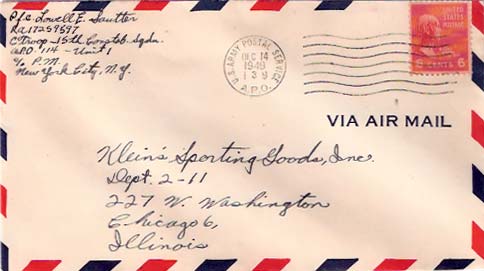 Pfc Lowell E. Sautter
Ra17259597
C Troop - 15th Constab. Sqdn.
A.P.O. 114 - Unit 1
c/o P.M.
New York City, N.Y.
U.S. ARMY POSTAL SERVICE
DEC 14
1948
A.P.O.
UNITED STATES
POSTAGE
6 CENTS 6
VIA AIR MAIL
Klein's Sporting Goods, Inc.
Dept. 2-11
227 W. Washington
Chicago 6,
Illinois